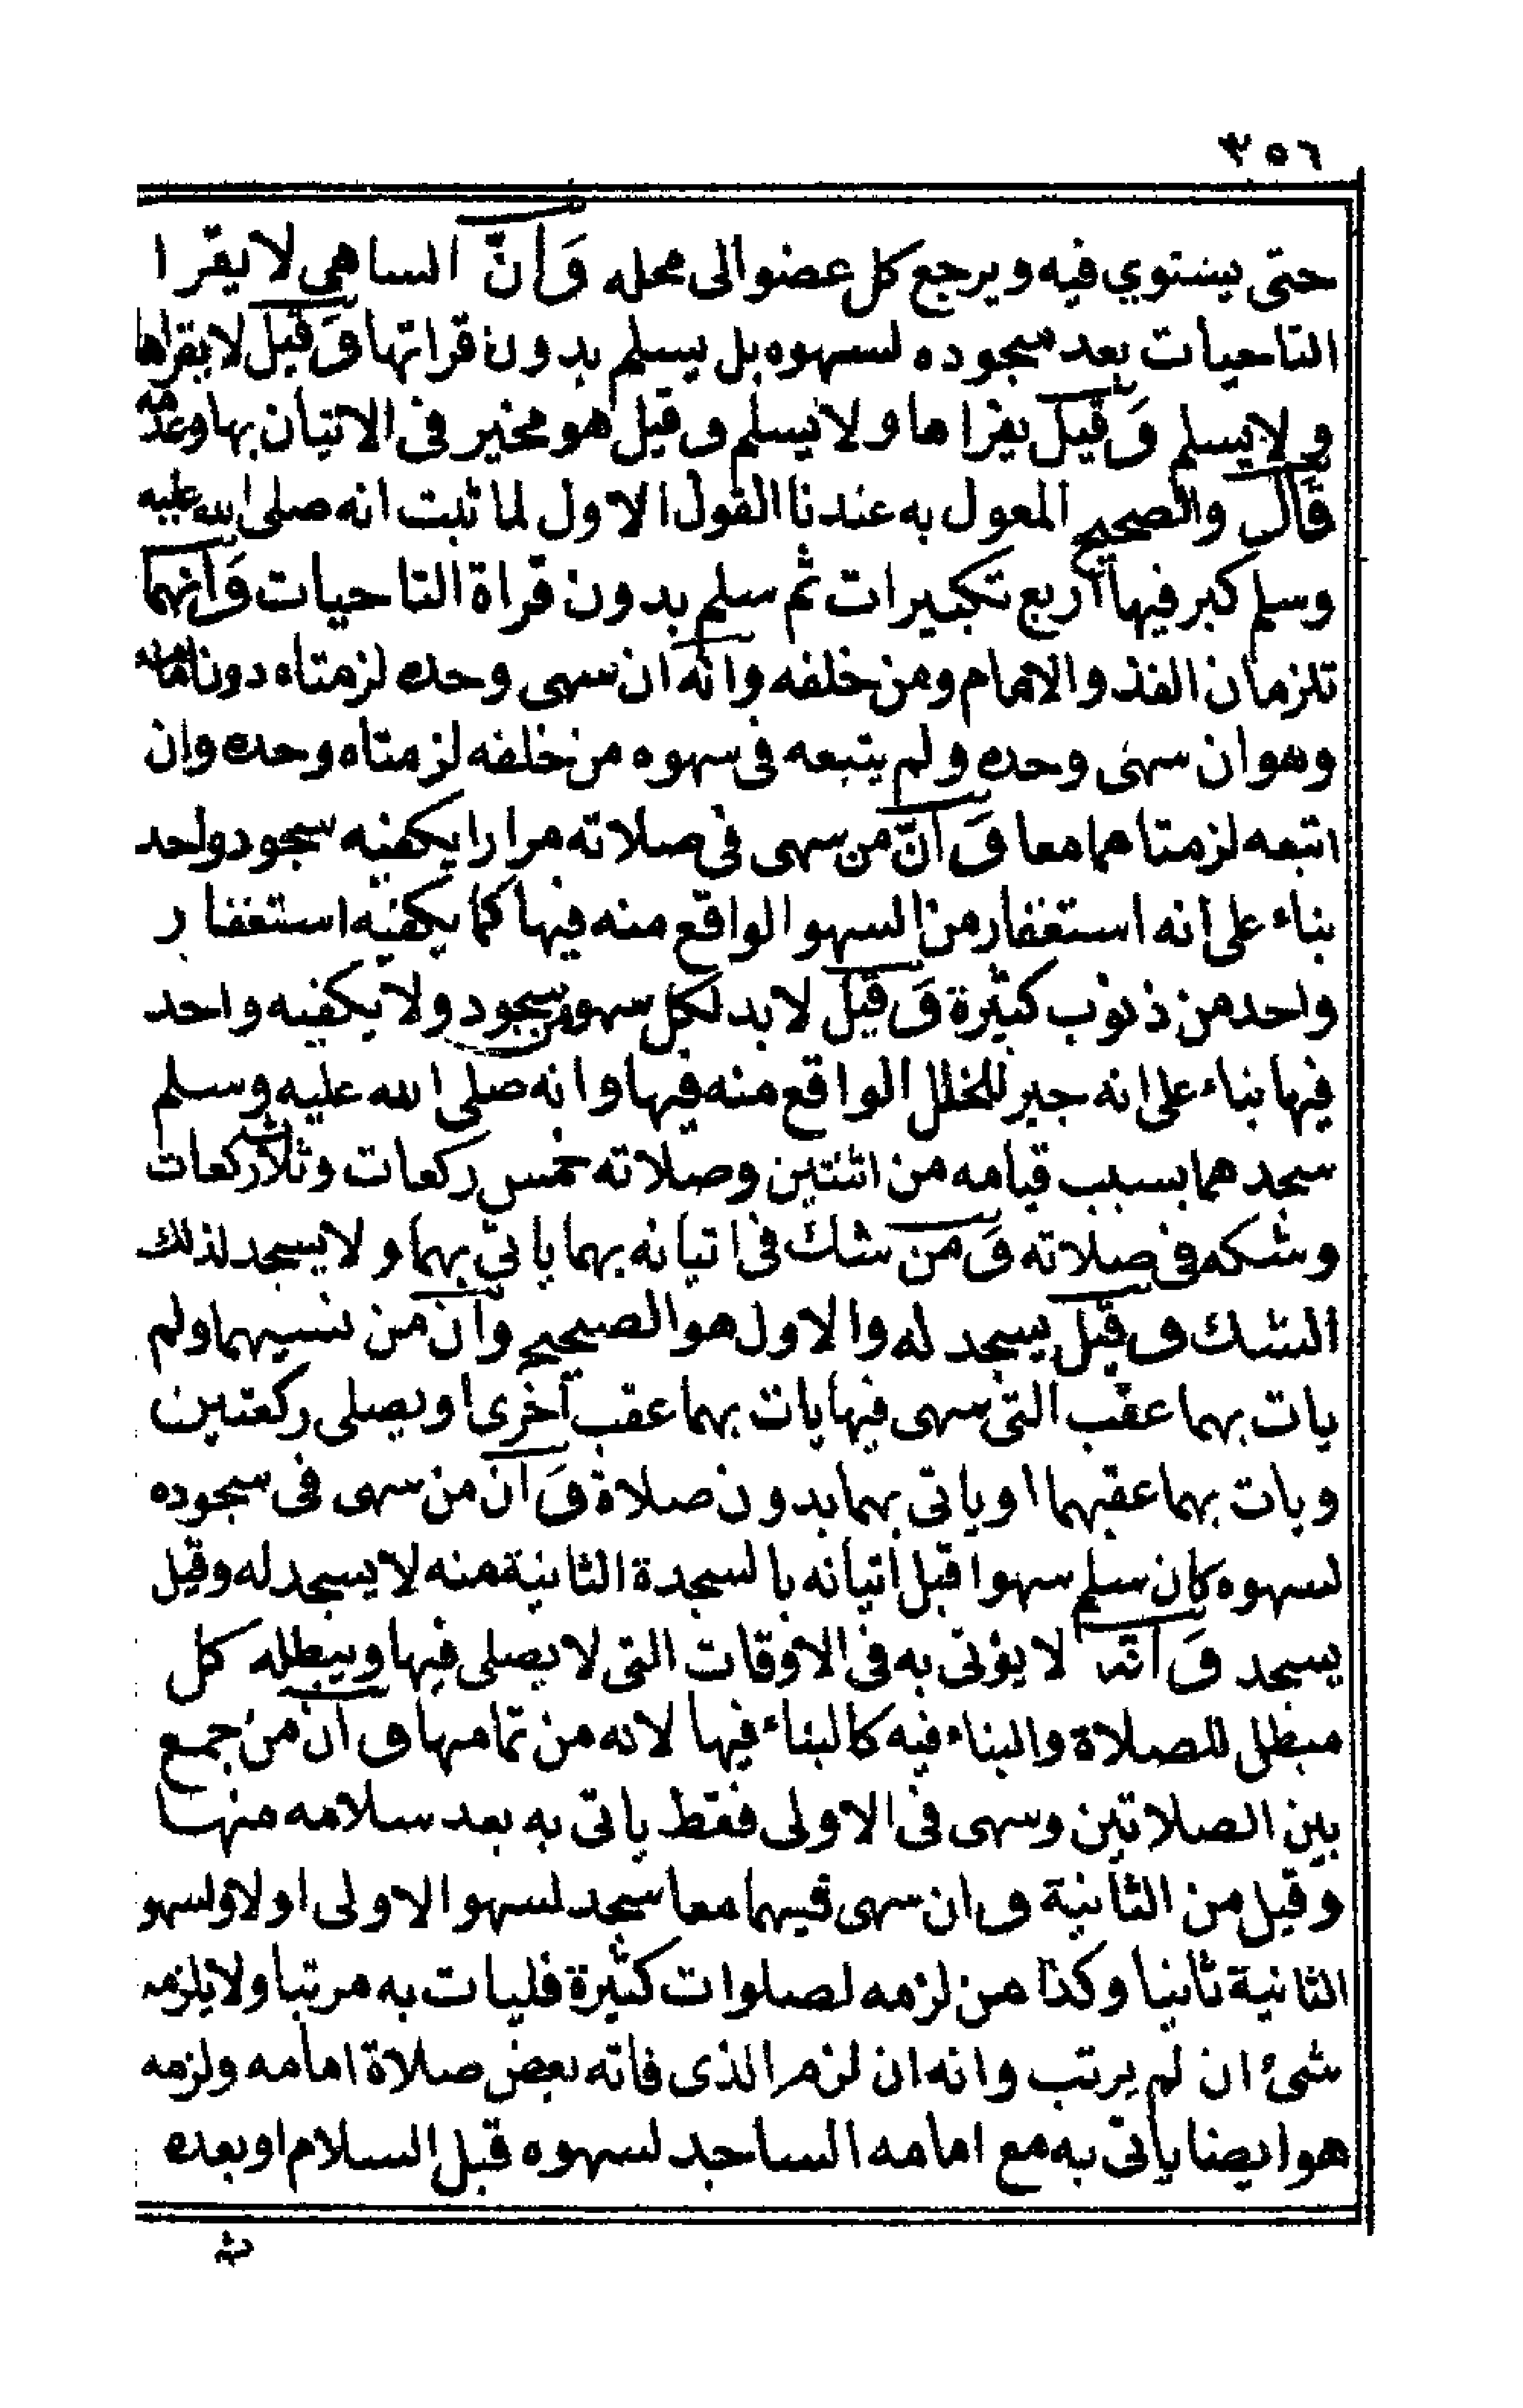 ٣٥٦
حتى يستوي فيه ويرجع كل عضو الى محله وَاَنَّ الساهي لا يقرا
التاحيات بعد سجوده لسهوه بل يسلم بدون قراتها وَقيل لا يقراها
ولا يسلم وَقيل يقراها ولا يسلم وقيل هو مخير فى الاتيان بها وعدمه
قَال والصحيح المعول به عندنا القول الاول لما ثبت انه صلى الله عليه
وسلم كبر فيها اربع تكبيرات ثم سلم بدون قراة التاحيات وَانهما
تلزمان الفذ والامام ومن خلفه وانه ان سهى وحده لزمتاه دون امامه
وهو ان سهى وحده ولم يتبعه فى سهوه من خلفه لزمتاه وحده وان
اتبعه لزمتاهما معا وَاَنَّ من سهى فى صلاته مرارا يكفيه سجود واحد
بناء على انه استغفار من السهو الواقع منه فيها كما يكفيه استغفار
واحد من ذنوب كثيرة وَقيل لا بد لكل سهو من سجود ولا يكفيه واحد
فيها بناء على انه جبر للخلل الواقع منه فيها وانه صلى الله عليه وسلم
سجدهما بسبب قيامه من اثنتين وصلاته خمس ركعات وثلاث ركعات
وشكه فى صلاته وَمن شك فى اتيانه بهما ياتي بهما ولا يسجد لذلك
الشك وقيل يسجد له والاول هو الصحيح وان من نسيهما ولم
يات بهما عقب التى سهى فيها يات بهما عقب اخرى او يصلى ركعتين
ويات بهما عقبهما او ياتى بهما بدون صلاة وَان من سهى فى سجوده
لسهوه كان سلم سهوا قبل اتيانه بالسجدة الثانية منه لا يسجد له وقيل
يسجد وَانه لا يؤتى به فى الاوقات التى لا يصلى فيها ويبطله كل
مبطل للصلاة والبناء فيه كالبناء فيها لانه من تمامها وان من جمع
بين الصلاتين وسهى فى الاولى فقط ياتى به بعد سلامه منها
وقيل من الثانية وان سهى فيهما معا سجد لسهو الاولى اولا ولسهو
الثانية ثانيا وكذا من لزمه لصلوات كثيرة فليات به مرتبا ولا يلزمه
شىء ان لم يرتب وانه ان لزم الذى فاته بعض صلاة امامه ولزمه
هو ايضا ياتى به مع امامه الساجد لسهوه قبل السلام او بعده